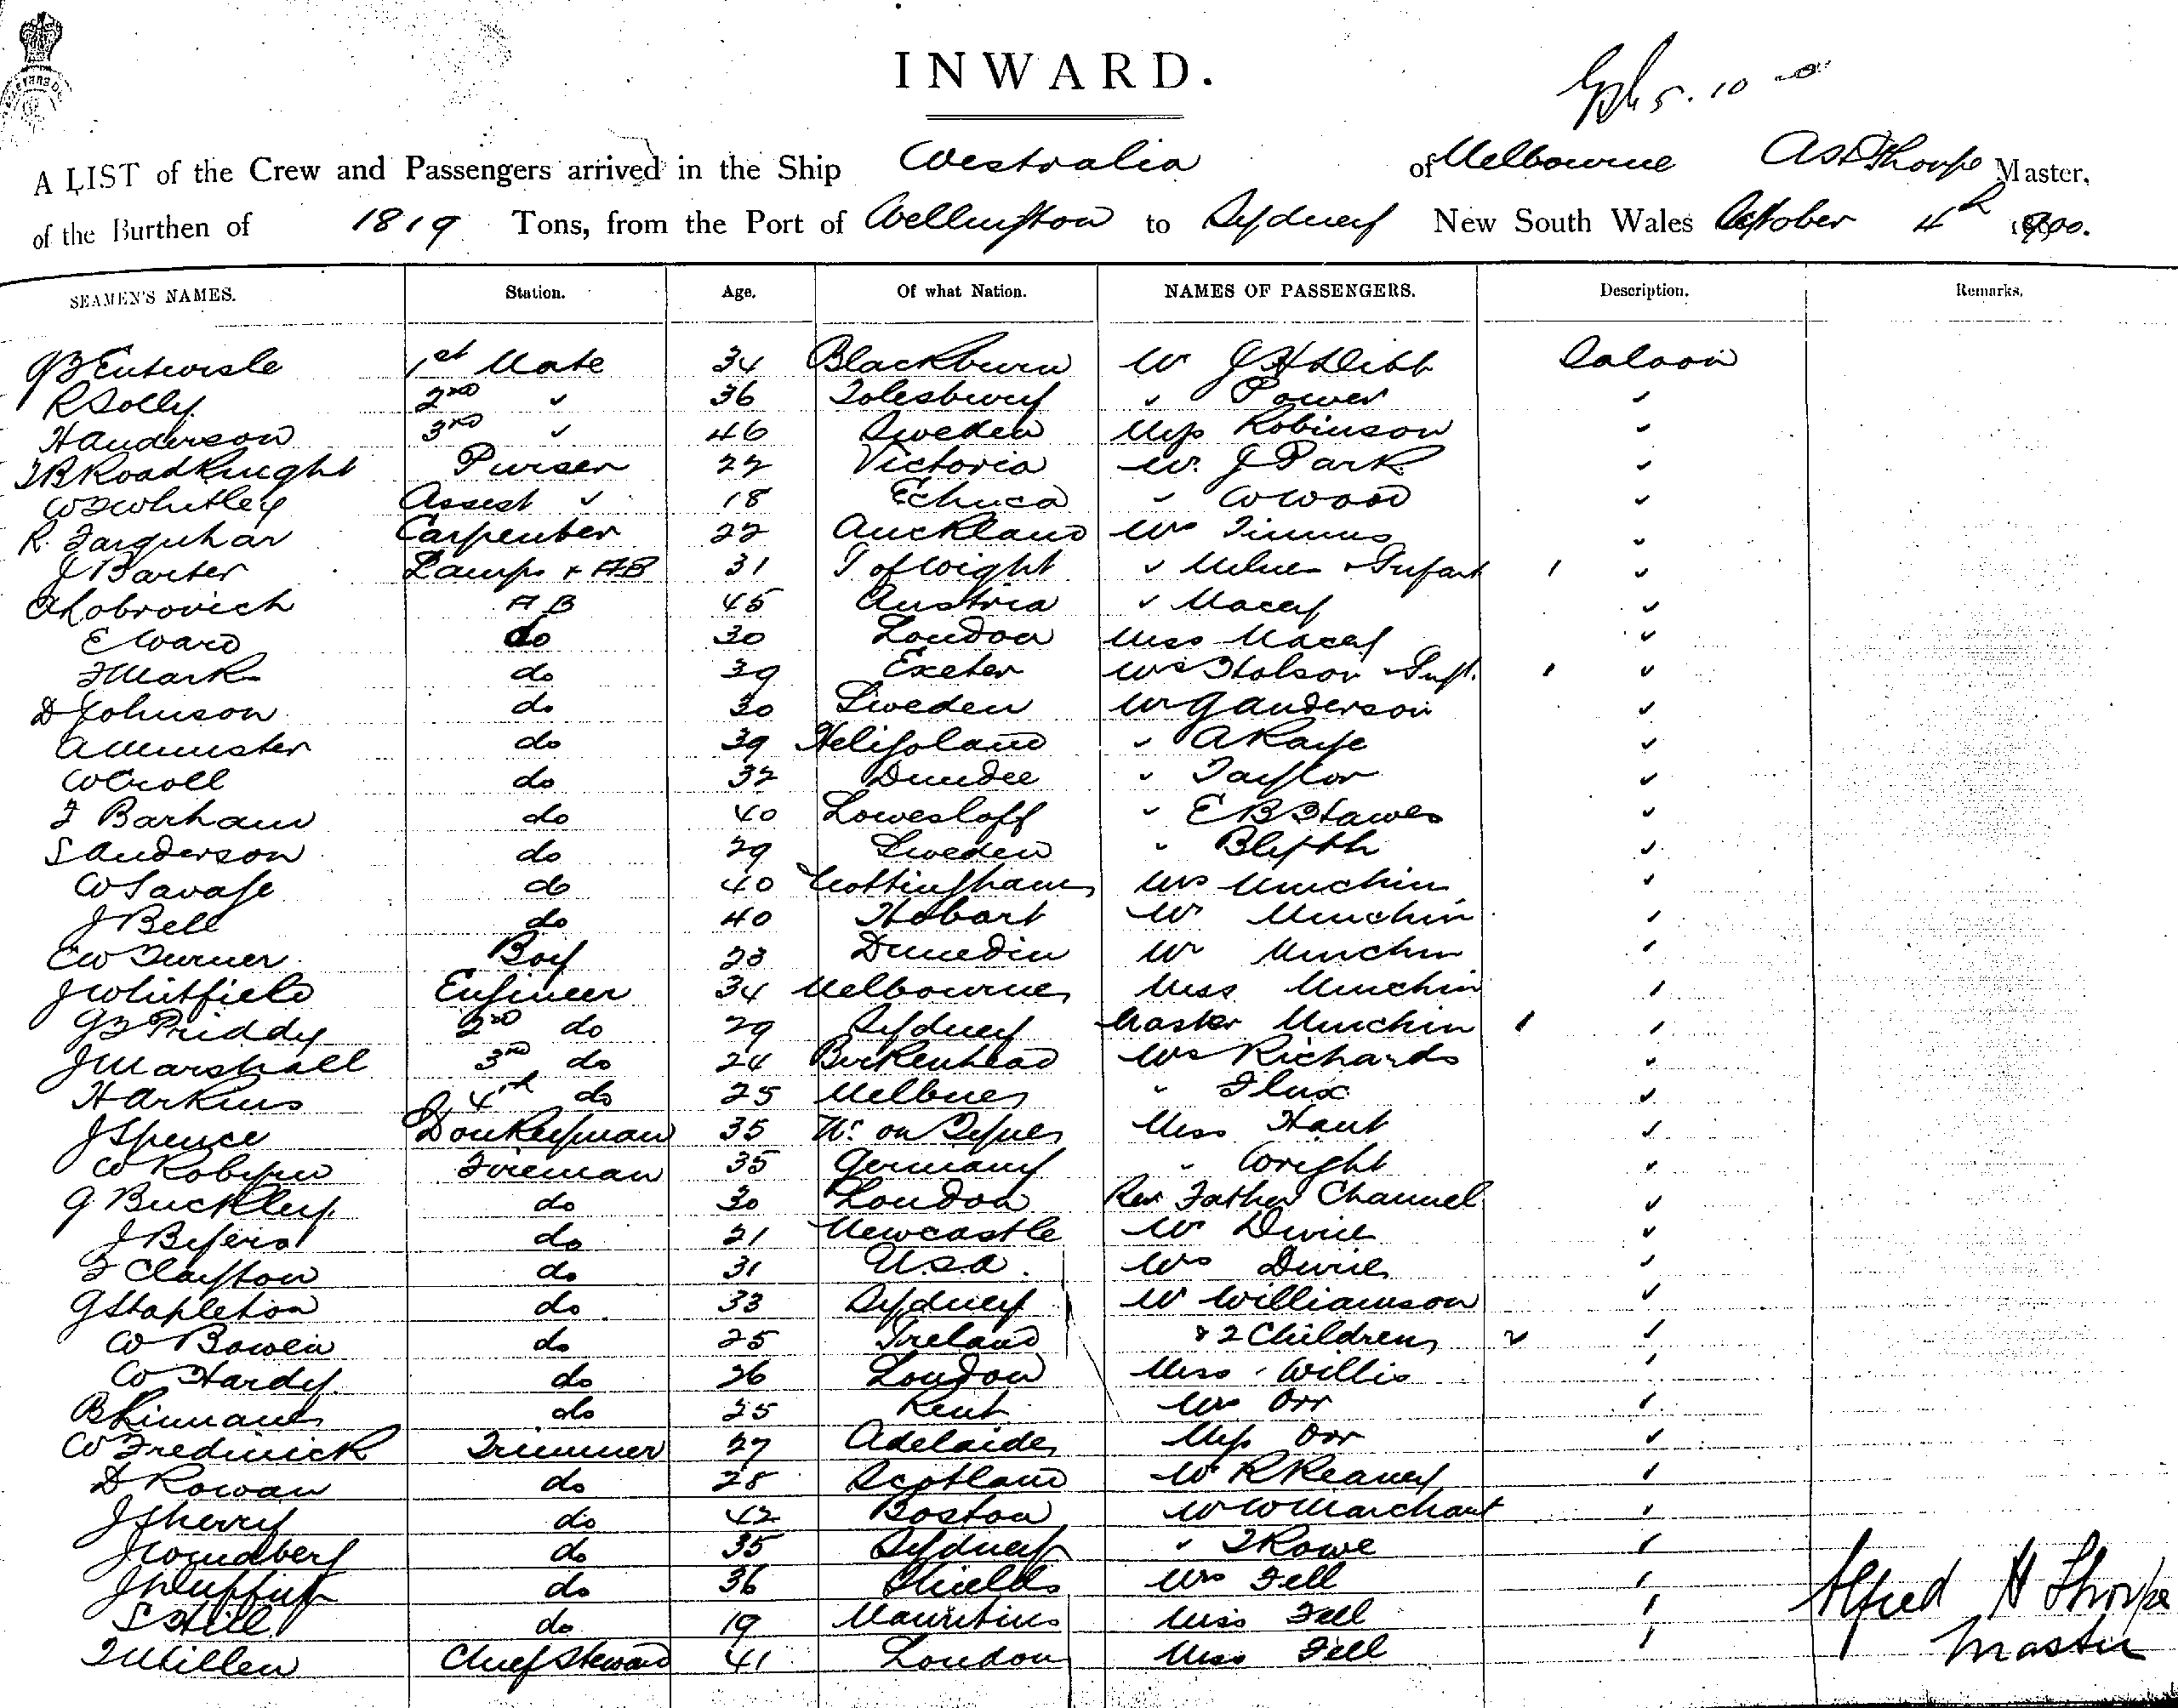 INWARD.
5. 10
A LIST of the Crew and Passengers arrived in the Ship Westralia of Melbourne Thorpe Master,
of the Burthen of 1819 Tons, from the Port of Wellington to Sydney New South Wales October 4th 1900.
SEAMEN'S NAMES. Station. Age. Of what Nation. NAMES OF PASSENGERS. Description. Remarks.
Entwisle 1st Mate 34 Blackburn Mr J H Dibb Saloon
R Solly 2nd " 36 Tolesbury " Power "
H Anderson 3rd " 46 Sweden Miss Robinson "
Roadknight Purser 22 Victoria Mr. J Park "
Whitley Assist " 18 Echuca " C Wood "
R. Farquhar Carpenter 22 Auckland Mrs Timms "
J Barter Lamps + AB 31 I of Wight " Milne + Infant 1 "
A Lobrovich AB 45 Austria " Macey "
E Ward do 30 London Miss Macey "
F Mark do 39 Exeter Mrs Holson + Inft. 1 "
D Johnson do 30 Sweden Mr G Anderson "
A Munster do 39 Heligoland " A Kaye "
W Croll do 32 Dundee " Taylor "
F Barham do 40 Lowestoff " E B Hawes "
S Anderson do 29 Sweden " Blyth "
W Savage do 40 Nottingham Mrs Minchin "
J Bell do 40 Hobart Mr Minchin "
C W Turner Boy 23 Dunedin Mr Minchin "
J Whitfield Engineer 34 Melbourne Miss Minchin "
Priddy 2nd do 29 Sydney Master Minchin 1 "
J Marshall 3rd do 24 Birkenhead Mrs Richards "
H Arkins 4th do 25 Melbne " Flux "
J Spence Donkeyman 35 N. on Tyne Miss Hant "
W Robyn Fireman 35 Germany " Wright "
G Buckley do 30 London Rev Father Chaunel "
J Byers do 21 Newcastle Mr Divine "
F Clayton do 31 U.S.A. Mrs Divine "
G Stapleton do 33 Sydney Mr Williamson "
W Bowen do 25 Ireland & 2 Children 2 "
W Hardy do 26 London Miss Willis "
B Kinnane do 25 Kent Mrs Orr "
W Frederick Trimmer 27 Adelaide Miss Orr "
D Rowan do 28 Scotland Mr R Keaney "
J Sherry do 42 Boston Mr W Marchant "
J do 35 Sydney " T Rowe "
J do 36 Shields Mrs Fell "
S Hill do 19 Mauritius Miss Fell "
T Millen Chief Steward 41 London Miss Fell "
Alfred H Thorpe
Master